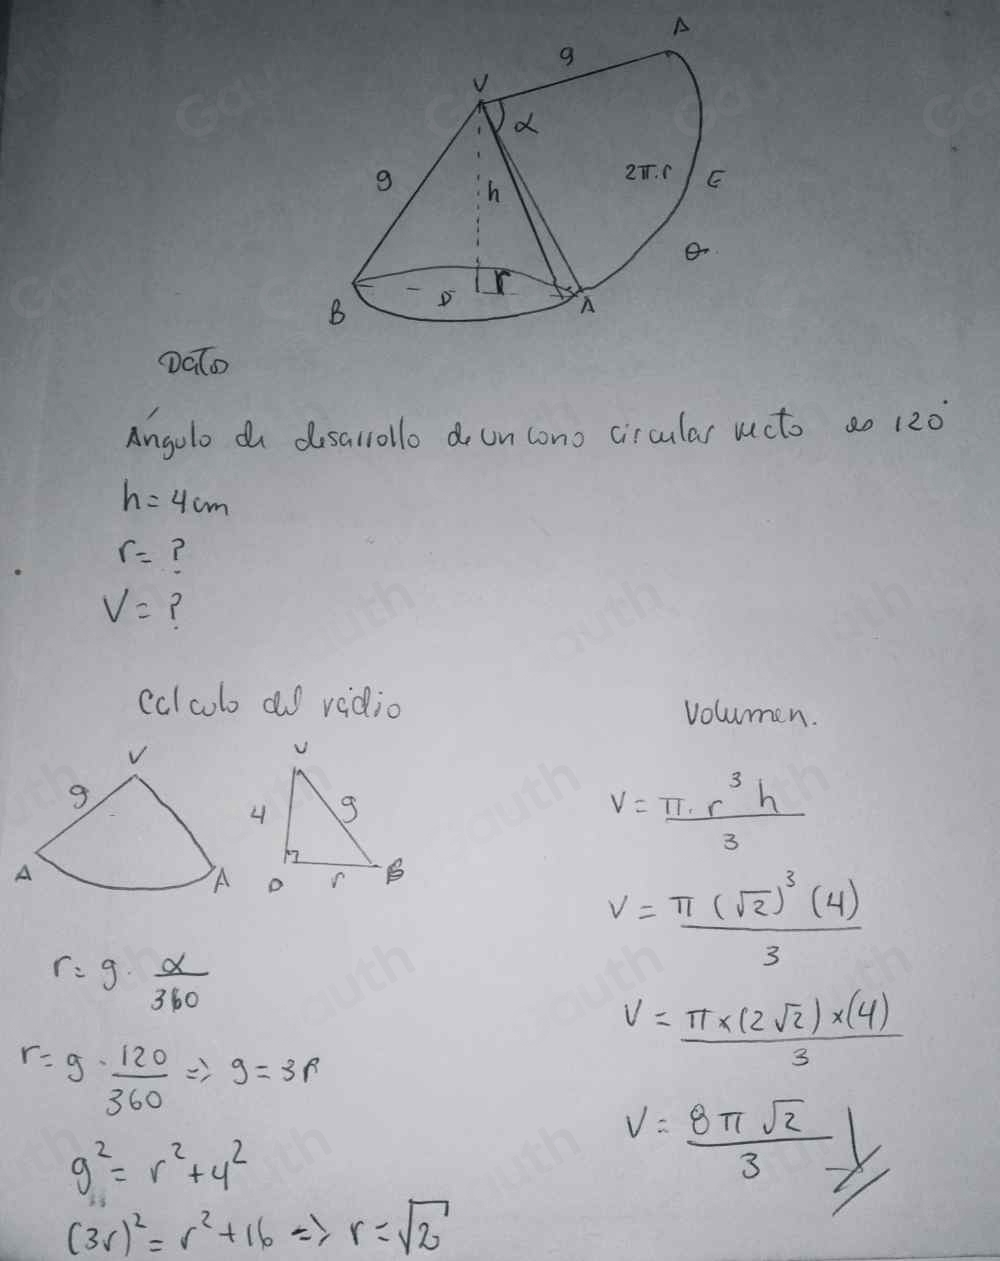 A
g
V
α
g
h
2π.r
E
θ
D
r
B
A
Dato
Ángulo de desarrollo de un cono circular recto es 120°
h = 4cm
r = ?
V = ?
Calculo del radio
V
g
A
A
V
4
g
O
r
B
r = g · α/360
r = g · 120/360 => g = 3r
g² = r² + 4²
(3r)² = r² + 16 => r = √2
Volumen.
V = π · r³ h / 3
V = π (√2)³ (4) / 3
V = π × (2√2) × (4) / 3
V = 8 π √2 / 3